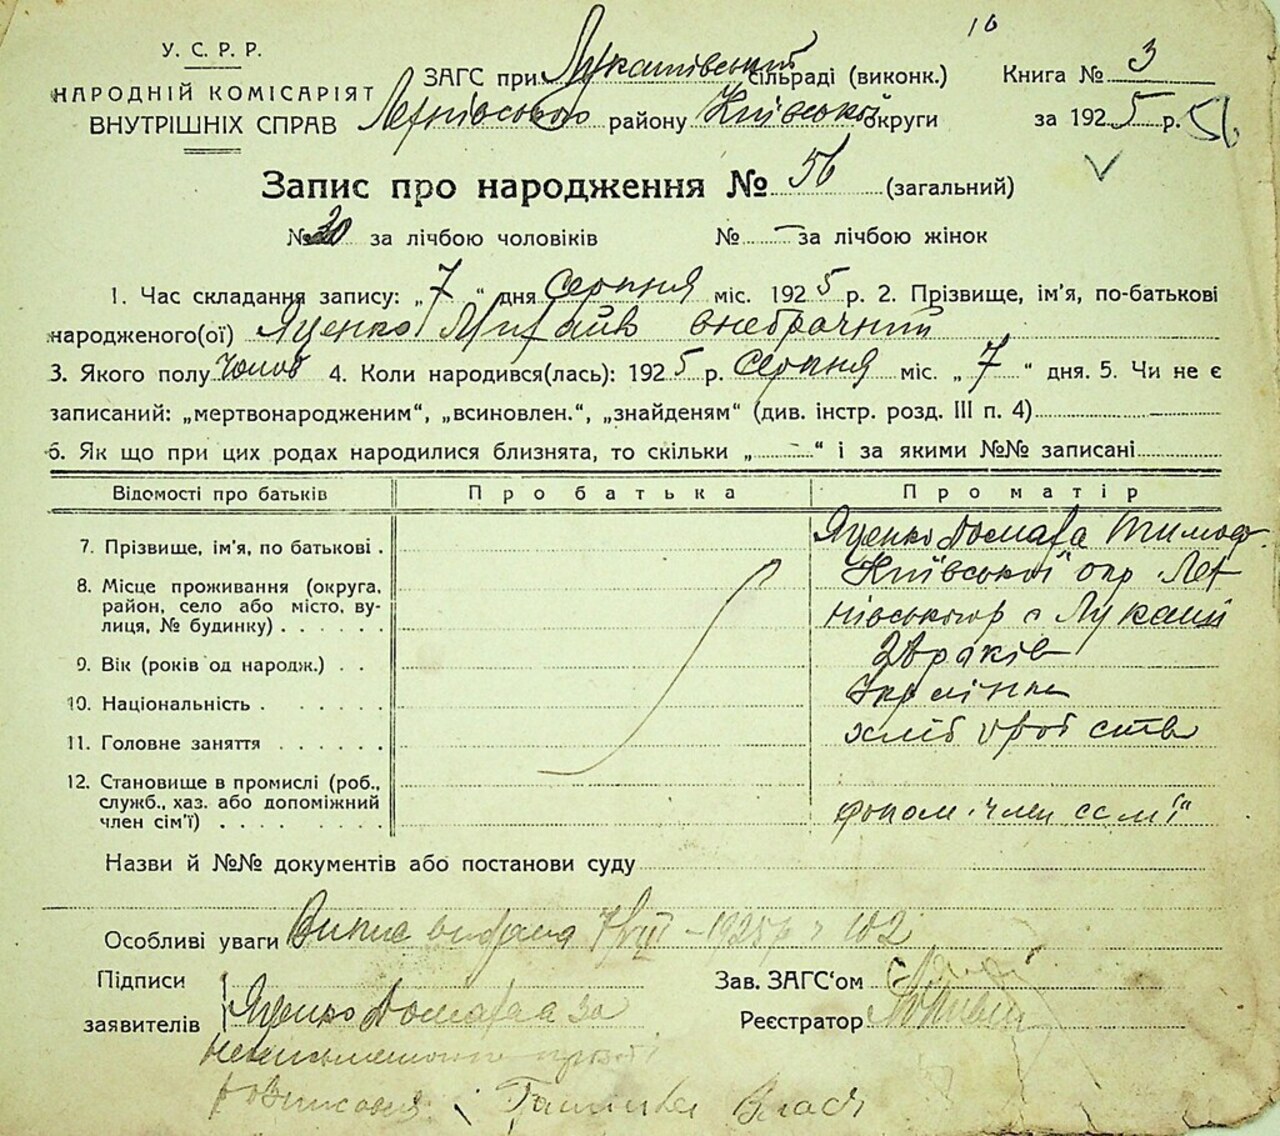 16
У. С. Р. Р.
НАРОДНІЙ КОМІСАРІЯТ
ВНУТРІШНІХ СПРАВ
ЗАГС при Лукашівський сільраді (виконк.)
району Київської округи
Книга № 3
за 1925 р. 56
Запис про народження № 56 (загальний)
№ 30 за лічбою чоловіків № - за лічбою жінок
1. Час складання запису: „7“ дня Серпня міс. 1925 р. 2. Прізвище, ім'я, по-батькові
народженого(ої) Яценко внебрачний
3. Якого полу чолов 4. Коли народився(лась): 1925 р. Серпня міс. „7“ дня. 5. Чи не є
записаний: „мертвонародженим“, „всиновлен.“, „знайденям“ (див. інстр. розд. III п. 4)
6. Як що при цих родах народилися близнята, то скільки „ “ і за якими №№ записані
Відомості про батьків Про батька Про матір
7. Прізвище, ім'я, по батькові . Яценко Домаха Тимоф
8. Місце проживання (округа, район, село або місто, вулиця, № будинку) . . . . . . Київської окр
с Лукаші
9. Вік (років од народж.) . . років
10. Національність . . . . . .
11. Головне заняття . . . . . . хліборобство
12. Становище в промислі (роб., служб., хаз. або допоміжний член сім'ї) . . . . . . допом. член сем'ї
Назви й №№ документів або постанови суду
Особливі уваги Випис видана 7/VIII – 1925 р № 102
Підписи
заявителів Яценко Домаха а за
Зав. ЗАГС'ом
Реєстратор